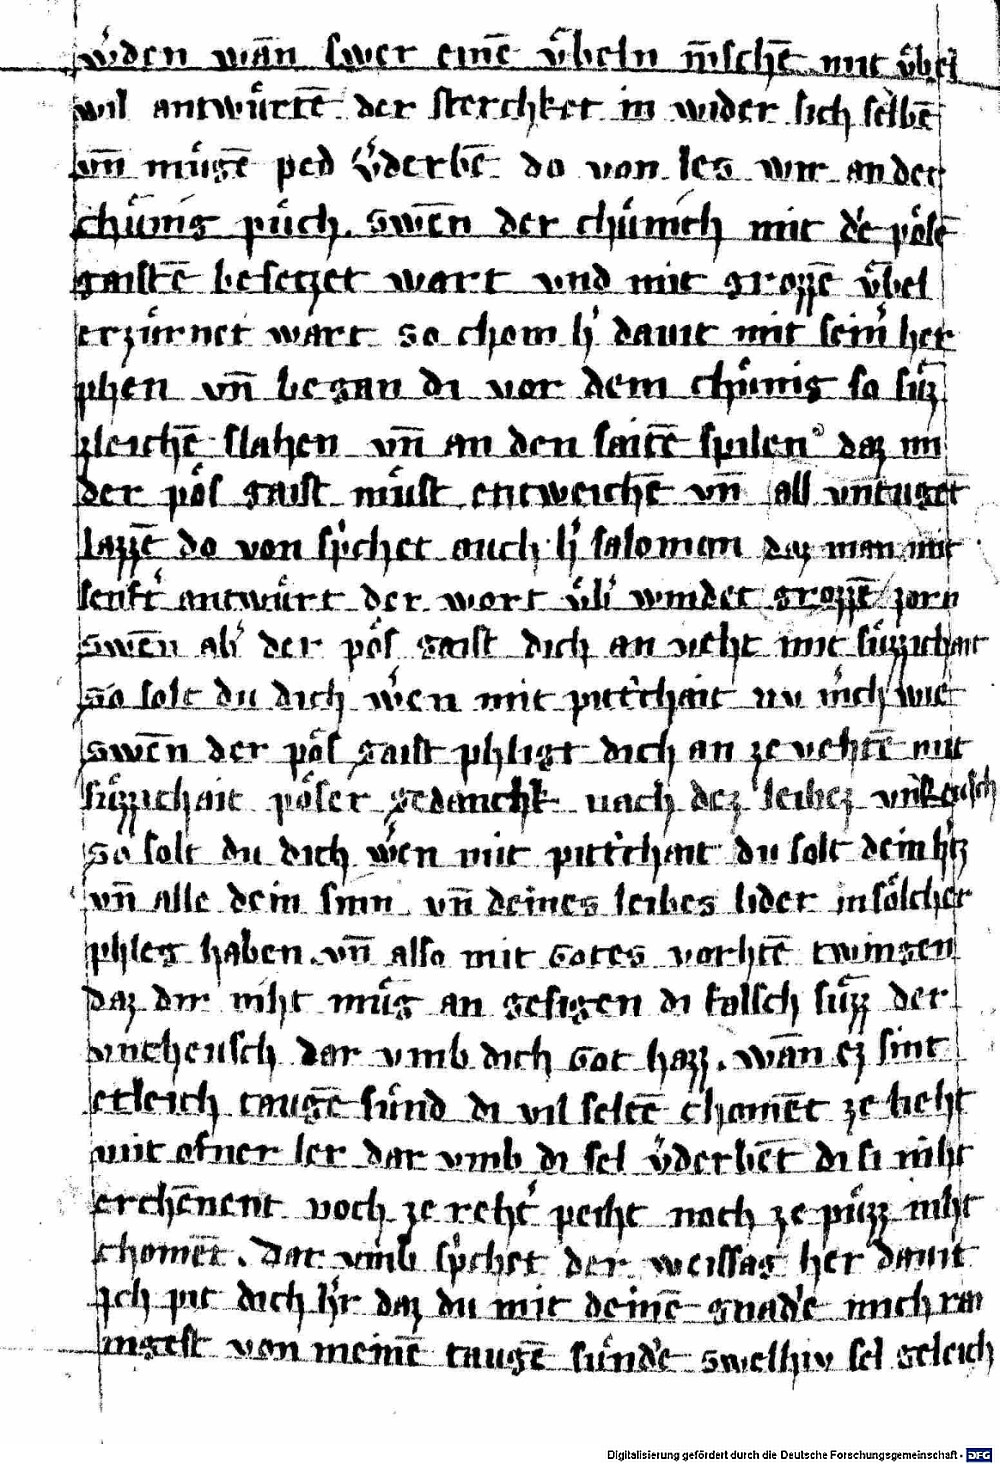 w̾den wān swer einē v̈beln m̄schē mit v̈bel
wil antwuͤrtē der sterchket in wider sich selbē
vn̄ muͤgē ped v̾derbē do von les wir an der
chuͤnig puͤch. Swēn der chuͤnich mit dē poͤsē
gaistē besetzet wart vnd mit grozzē v̈bel
erzuͤrnet wart so chom h̾ dauit mit sein̾ her
phen vn̄ began di vor dem chuͤnig so suͤzz
zleichē slahen vn̄ an den saitē spilen daz im
der poͤs gaist muͤst entweichē vn̄ all vntugēt
lazzē do von sp̾chet auch h̾ salomon daz man mit
senft̾ antwuͤrt der wort v̈b̾ windet grozzē zorn
Swēn ab̾ der poͤs gaist dich an veht mit suͤzzichait
So solt du dich w̾en mit pitt̾chait nu m̾ch wie
Swēn der poͤs gaist phligt dich an ze vehtē mit
suͤzzichait poͤser gedanchk nach dez leibez vnkeusch
So solt du dich w̾en mit pitt̾chait du solt dein h̾tz
vn̄ alle dein sinn vn̄ deines leibes lider in soͤlcher
phleg haben. vn̄ also mit Gotes vorhtē twingen
daz dir niht muͤg an gesigen di falsch suͤzz der
vncheusch dar vmb dich Got hazz. wān ez sint
etleich taugē suͤnd di vil seltē chomēt ze lieht
mit ofner ler dar vmb di sel v̾derbēt di si niht
erchēnent noch ze reht̾ peiht noch ze puͤzz niht
chomēt. Dar vmb sp̾chet der weissag her dauit
Ich pit dich h̾r daz du mit deinē gnadē mich rai
nigest von meinē taugē suͤndē Swelhiv sel geleich
Digitalisierung gefördert durch die Deutsche Forschungsgemeinschaft - DFG